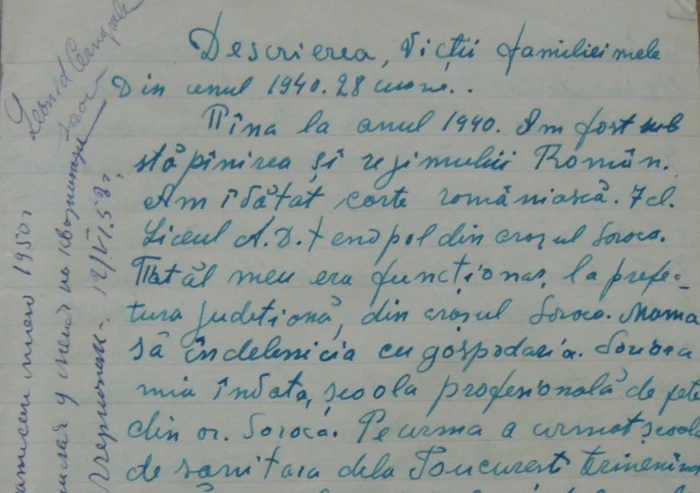 Descrierea, Vieții familiei mele
Din anul 1940. 28 iunie..
Pîna la anul 1940. Am fost sub
stăpînirea și regimului Român.
Am îvătăt carte româniască. 7 cl.
Liceul A.D.Xenopol din orașul Soroca.
Tatăl meu era funcționar, la prefe-
tura județionă, din orașul Soroca. Mama
să îndelenicia cu gospodaria. Sorioara
mia învăta, școola profesională de fete
din or. Soroca. Pe urma a urmat școola
de sanitara dela Bucurest
Leonid Cernopole
12/VI.58г.
1950г
у меня на квартире